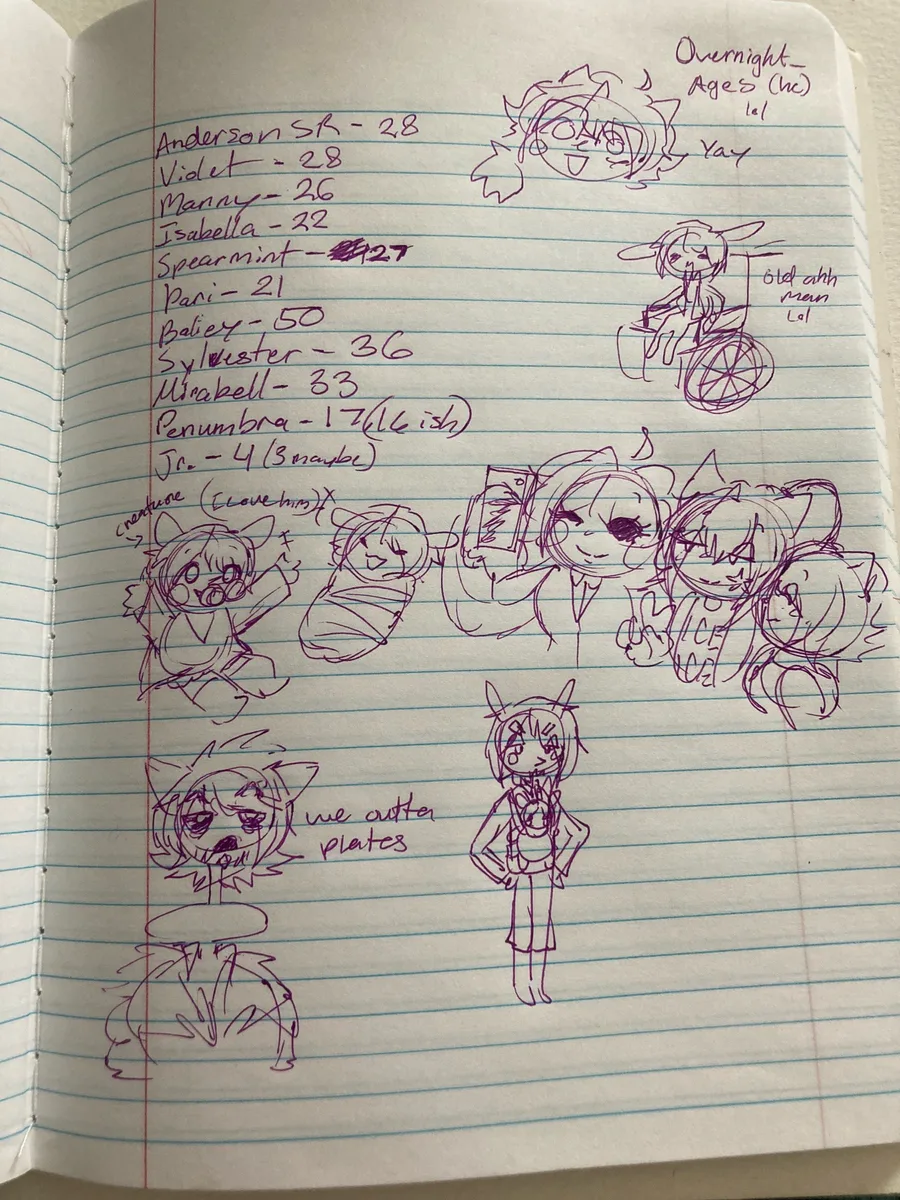 Overnight_
Ages (hc)
lol
Yay
Anderson SR - 28
Violet - 28
Manny - 26
Isabella - 22
Spearmint - 27
Pari - 21
Baliey - 50
Sylvester - 36
Mirabell - 33
Penumbra - 17 (16 ish)
Jr. - 4 (3 maybe)
old ahh
man
Lol
creature (I love him)
ICE
we outta
plates